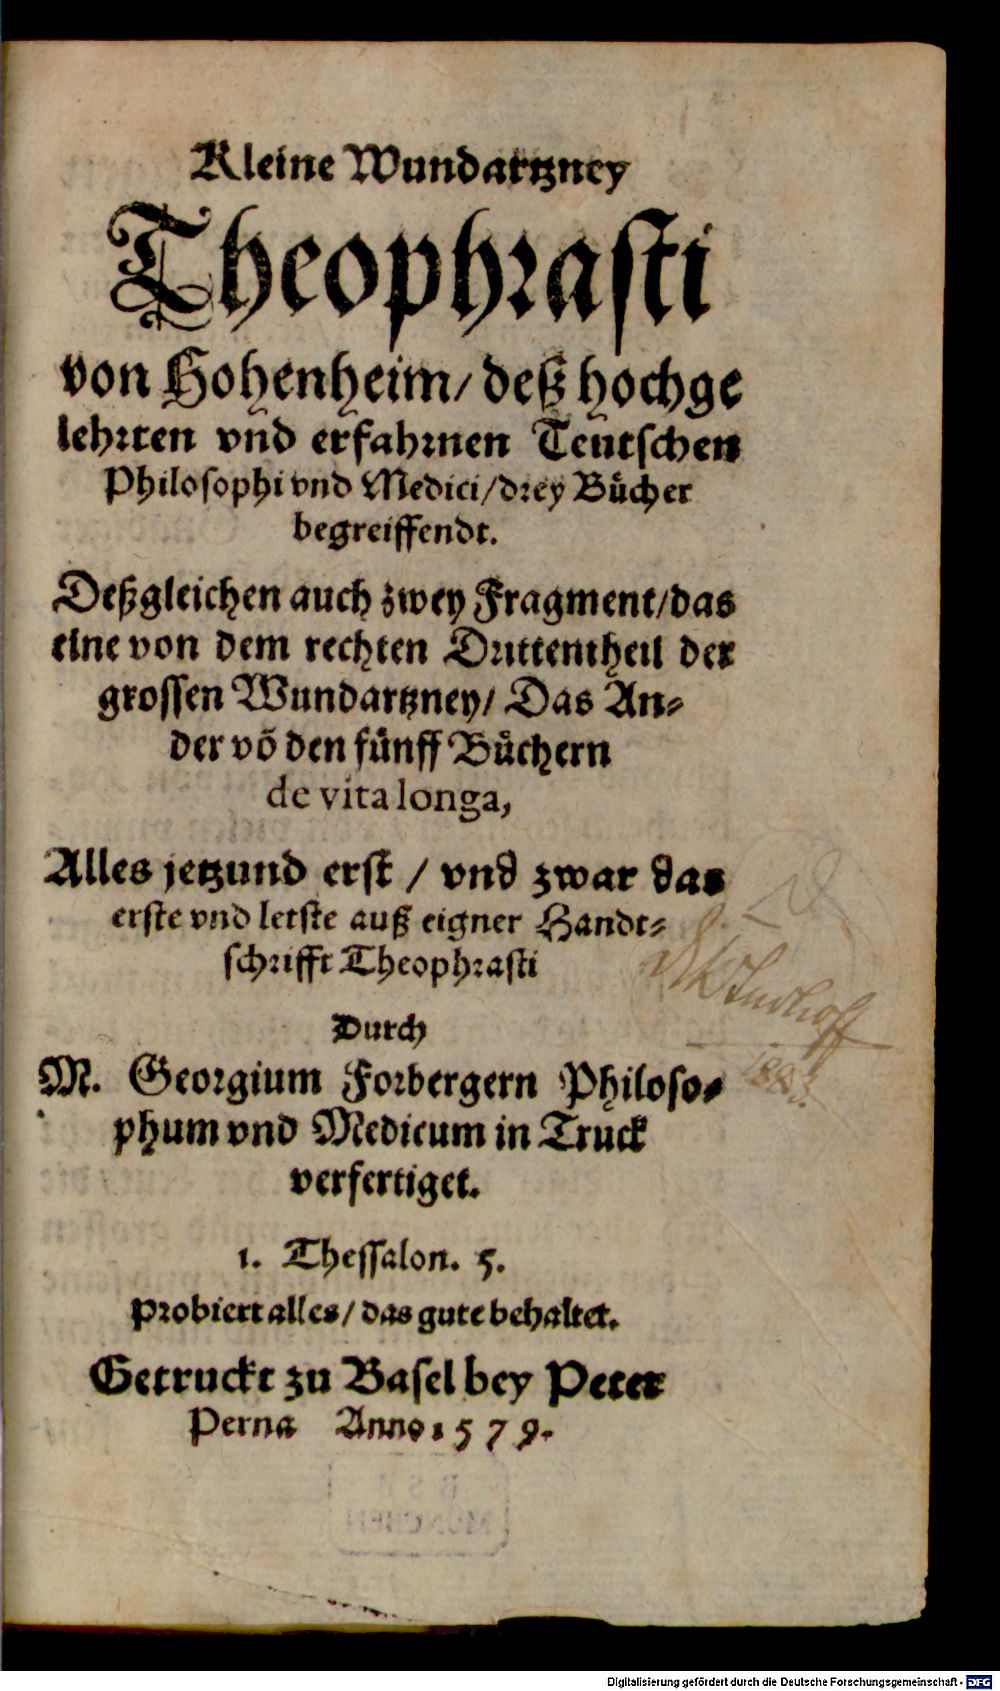 Kleine Wundartzney
Theophrasti
von Hohenheim/ deß hochge
lehrten vnd erfahrnen Teutschen
Philosophi vnd Medici/drey Bücher
begreiffendt.
Deßgleichen auch zwey Fragment/das
eine von dem rechten Drittentheil der
grossen Wundartzney/ Das An⸗
der võ den fünff Büchern
de vita longa,
Alles jetzund erst / vnd zwar das
erste vnd letste auß eigner Handt⸗
schrifft Theophrasti
Durch
M. Georgium Forbergern Philoso⸗
phum vnd Medicum in Truck
verfertiget.
1. Thessalon. 5.
Probiert alles/ das gute behaltet.
Getruckt zu Basel bey Peter
Perna Anno 1579.
1883.
B S B
MÜNCHEN
Digitalisierung gefördert durch die Deutsche Forschungsgemeinschaft - DFG